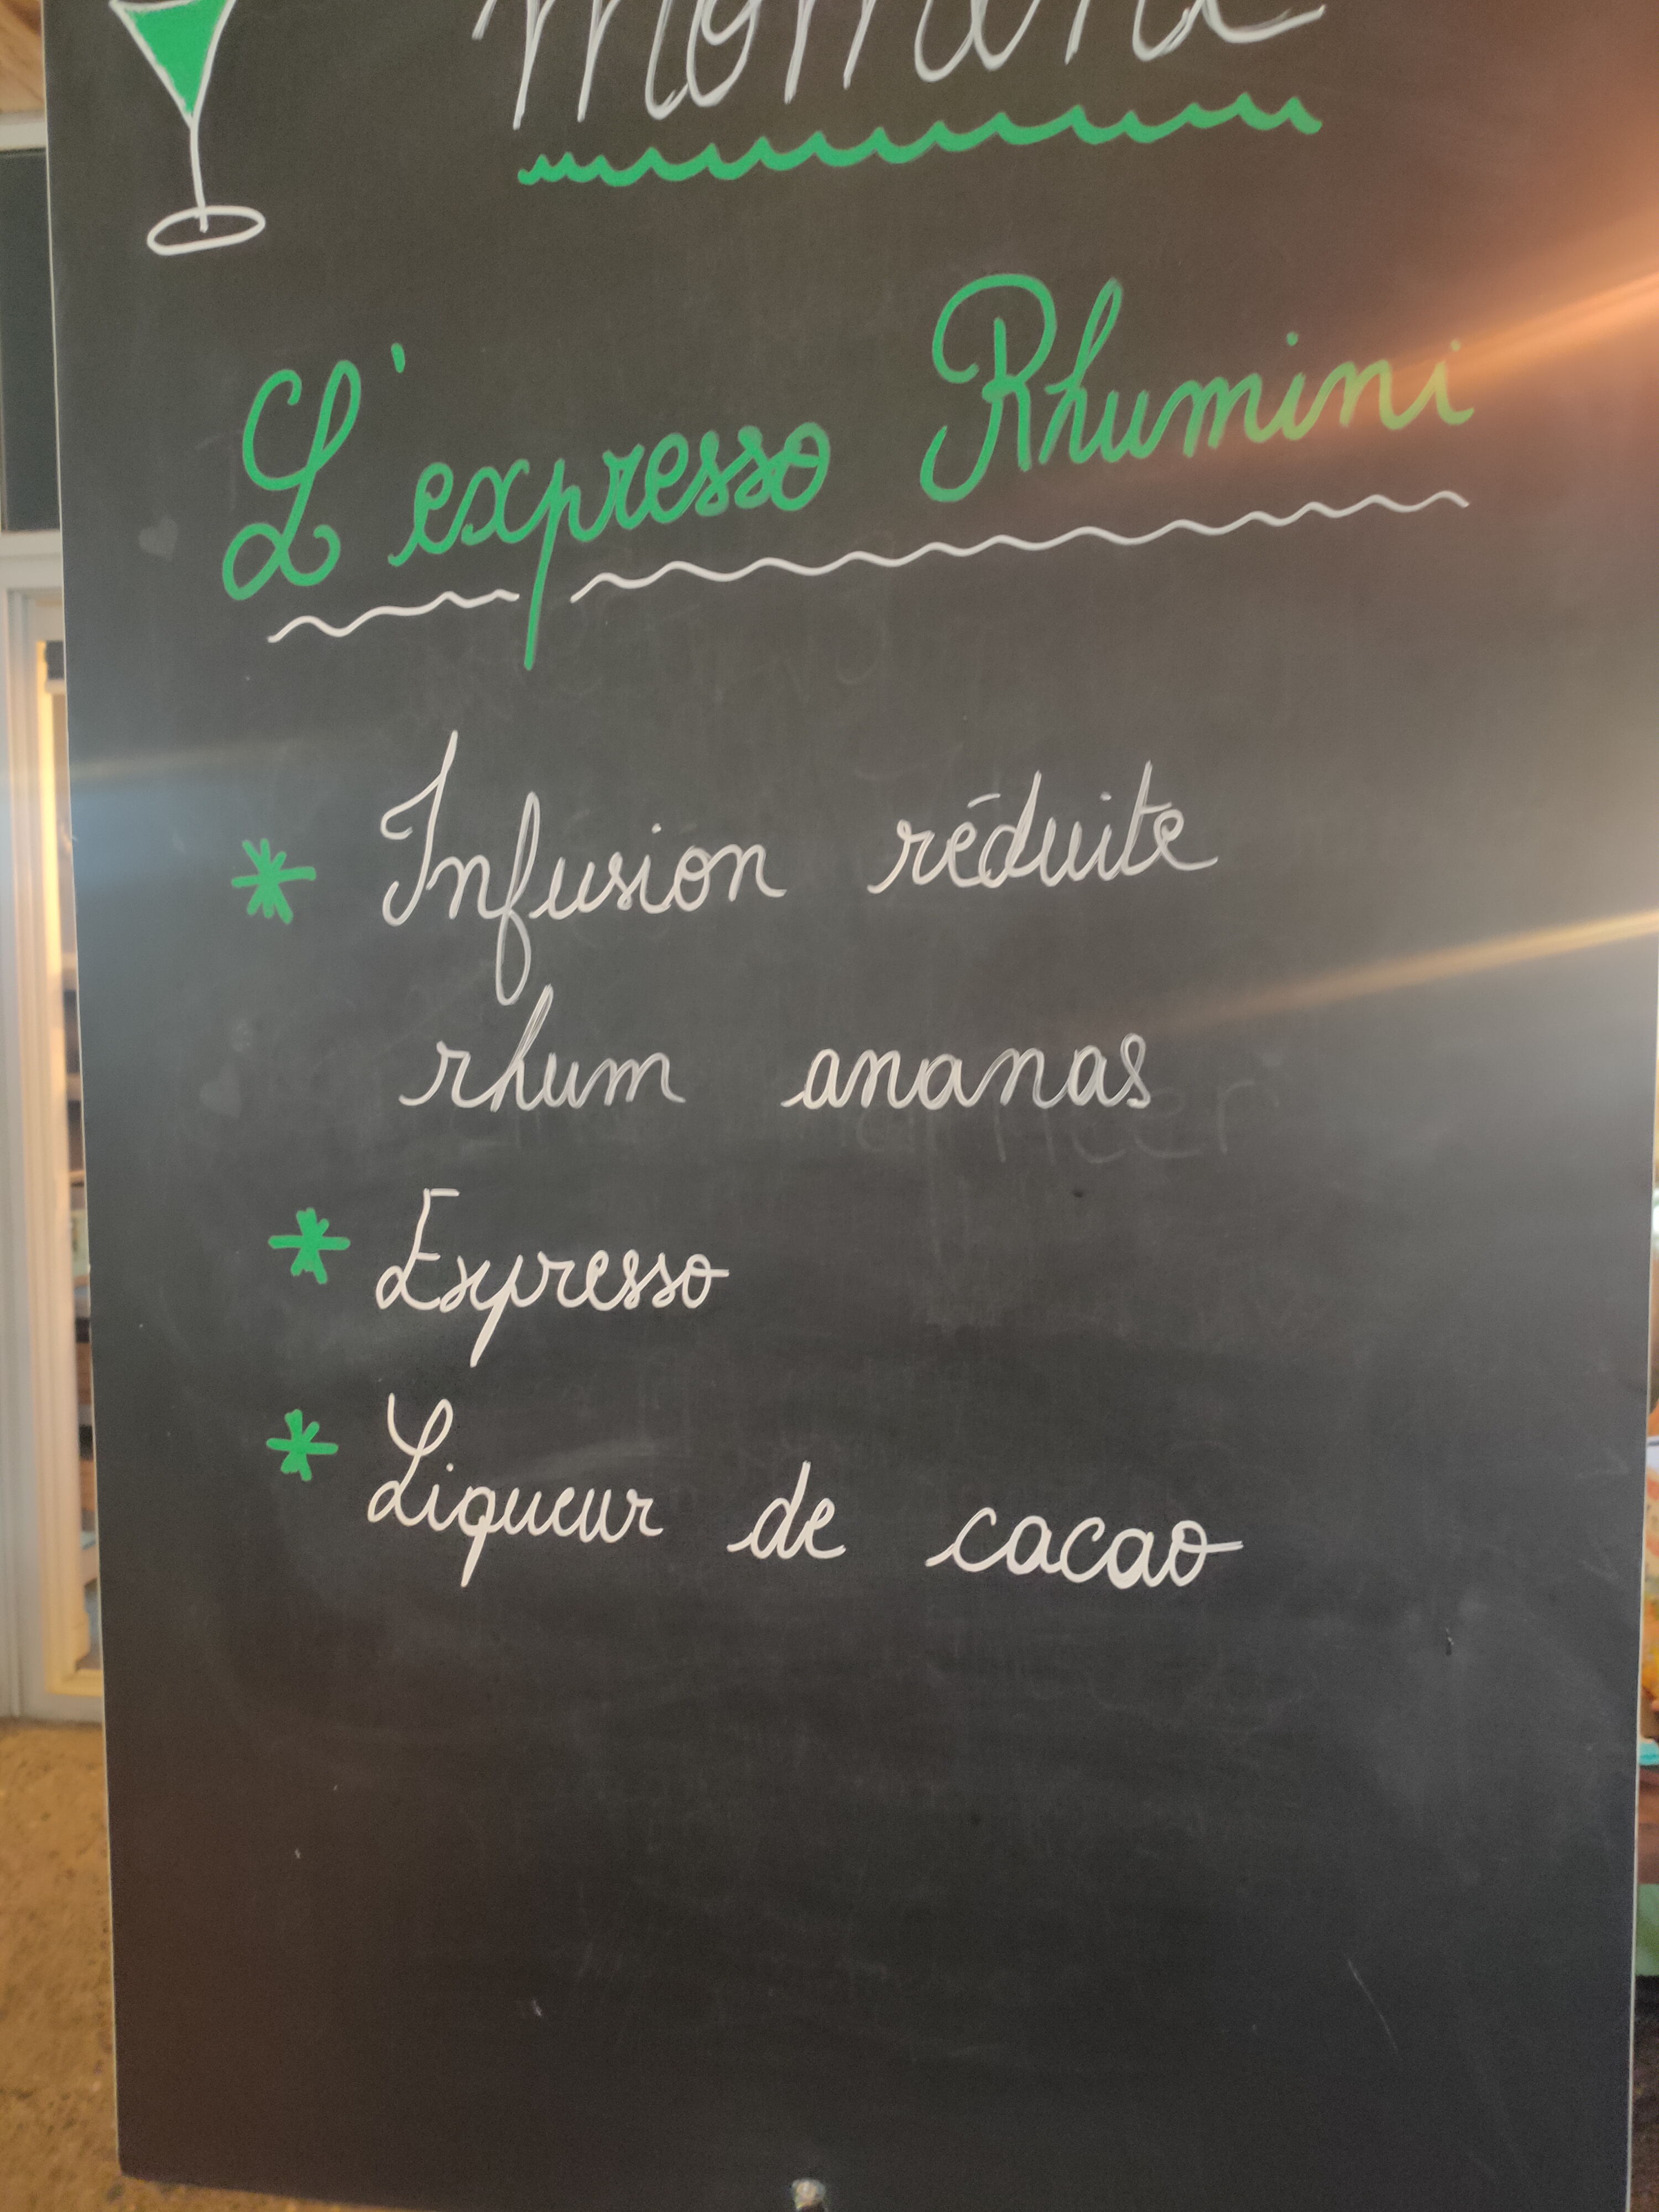 moment
L'expresso Rhumini
* Infusion réduite
rhum ananas
* Expresso
* Liqueur de cacao